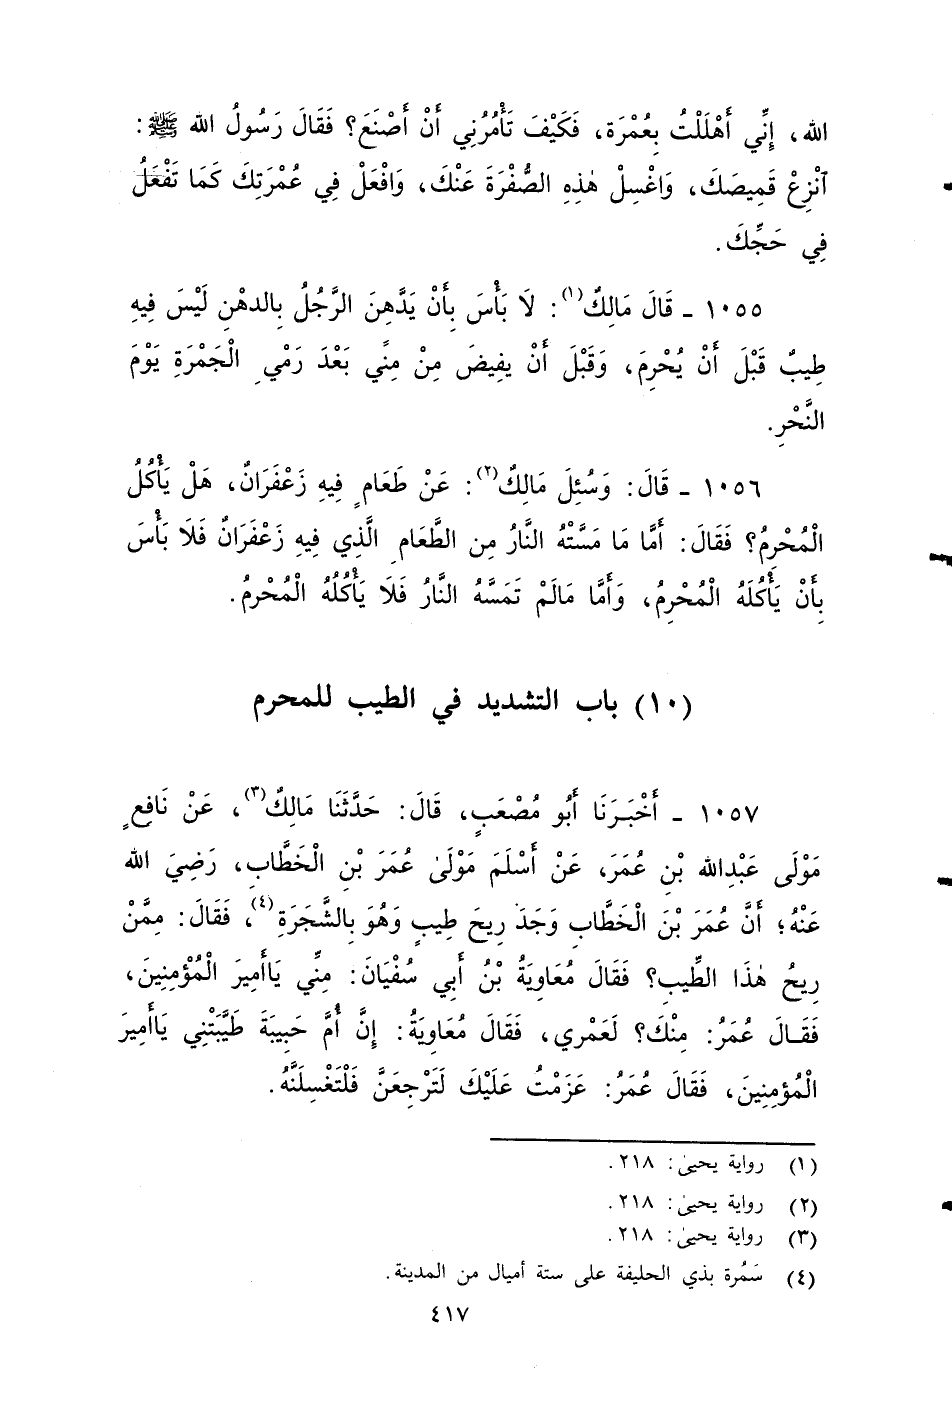 الله، إِنِّي أَهْلَلْتُ بِعُمْرَة، فَكَيْفَ تَأْمُرُنِي أَنْ أَصْنَعَ؟ فَقَالَ رَسُولُ الله ﷺ:
آنْزِعْ قَمِيصَكَ، وَاغْسِلْ هٰذِهِ الصُّفْرَةَ عَنْكَ، وَافْعَلْ فِي عُمْرَتِكَ كَمَا تَفْعَلُ
فِي حَجِّكَ.
١٠٥٥ ـ قَالَ مَالِكٌ(١): لَا بَأْسَ بِأَنْ يَدَّهِنَ الرَّجُلُ بِالدهْنِ لَيْسَ فِيهِ
طِيبٌ قَبْلَ أَنْ يُحْرِمَ، وَقَبْلَ أَنْ يفِيضَ مِنْ مِنًي بَعْدَ رَمْيِ الْجَمْرَةِ يَوْمَ
النَّحْرِ.
١٠٥٦ ـ قَالَ: وَسُئِلَ مَالِكٌ(٢): عَنْ طَعَامٍ فِيهِ زَعْفَرَانٌ، هَلْ يَأْكُلُ
الْمُحْرِمُ؟ فَقَالَ: أَمَّا مَا مَسَّتْهُ النَّارُ مِن الطَّعَامِ الَّذِي فِيهِ زَعْفَرَانٌ فَلَا بَأْسَ
بِأَنْ يَأْكُلَهُ الْمُحْرِمُ، وَأَمَّا مَالَمْ تَمَسَّهُ النَّارُ فَلَا يَأْكُلُهُ الْمُحْرِمُ.
(١٠) باب التشديد في الطيب للمحرم
١٠٥٧ ـ أَخْبَرَنَا أَبُو مُصْعَبٍ، قَالَ: حَدَّثَنَا مَالِكٌ(٣)، عَنْ نَافِعٍ
مَوْلَى عَبْدِالله بْنِ عُمَرَ، عَنْ أَسْلَمَ مَوْلَىٰ عُمَرَ بْنِ الْخَطَّابِ، رَضِيَ الله
عَنْهُ؛ أَنَّ عُمَرَ بْنَ الْخَطَّابِ وَجَدَ رِيحَ طِيبٍ وَهُوَ بِالشَّجَرَةِ(٤)، فَقَالَ: مِمَّنْ
رِيحُ هٰذَا الطِّيبِ؟ فَقَالَ مُعَاوِيَةُ بْنُ أَبِي سُفْيَانَ: مِنِّي يَاأَمِيرَ الْمُؤْمِنِينَ،
فَقَـالَ عُمَرُ: مِنْكَ؟ لَعَمْرِي، فَقَالَ مُعَاوِيَةُ: إِنَّ أُمَّ حَبِيبَةَ طَيَّبَتْنِي يَاأَمِيرَ
الْمُؤمِنِينَ، فَقَالَ عُمَرُ: عَزَمْتُ عَلَيْكَ لَتَرْجِعَنَّ فَلْتَغْسِلَنَّهُ.
(١) رواية يحيىٰ: ٢١٨.
(٢) رواية يحيىٰ: ٢١٨.
(٣) رواية يحيىٰ: ٢١٨.
(٤) سَمُرة بذي الحليفة على ستة أميال من المدينة.
٤١٧